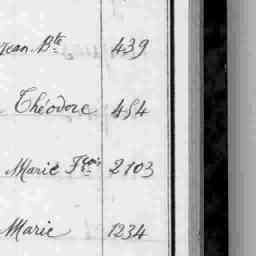 Jean Bte 439
Théodore 454
Marie Fçoise 2103
Marie 1234